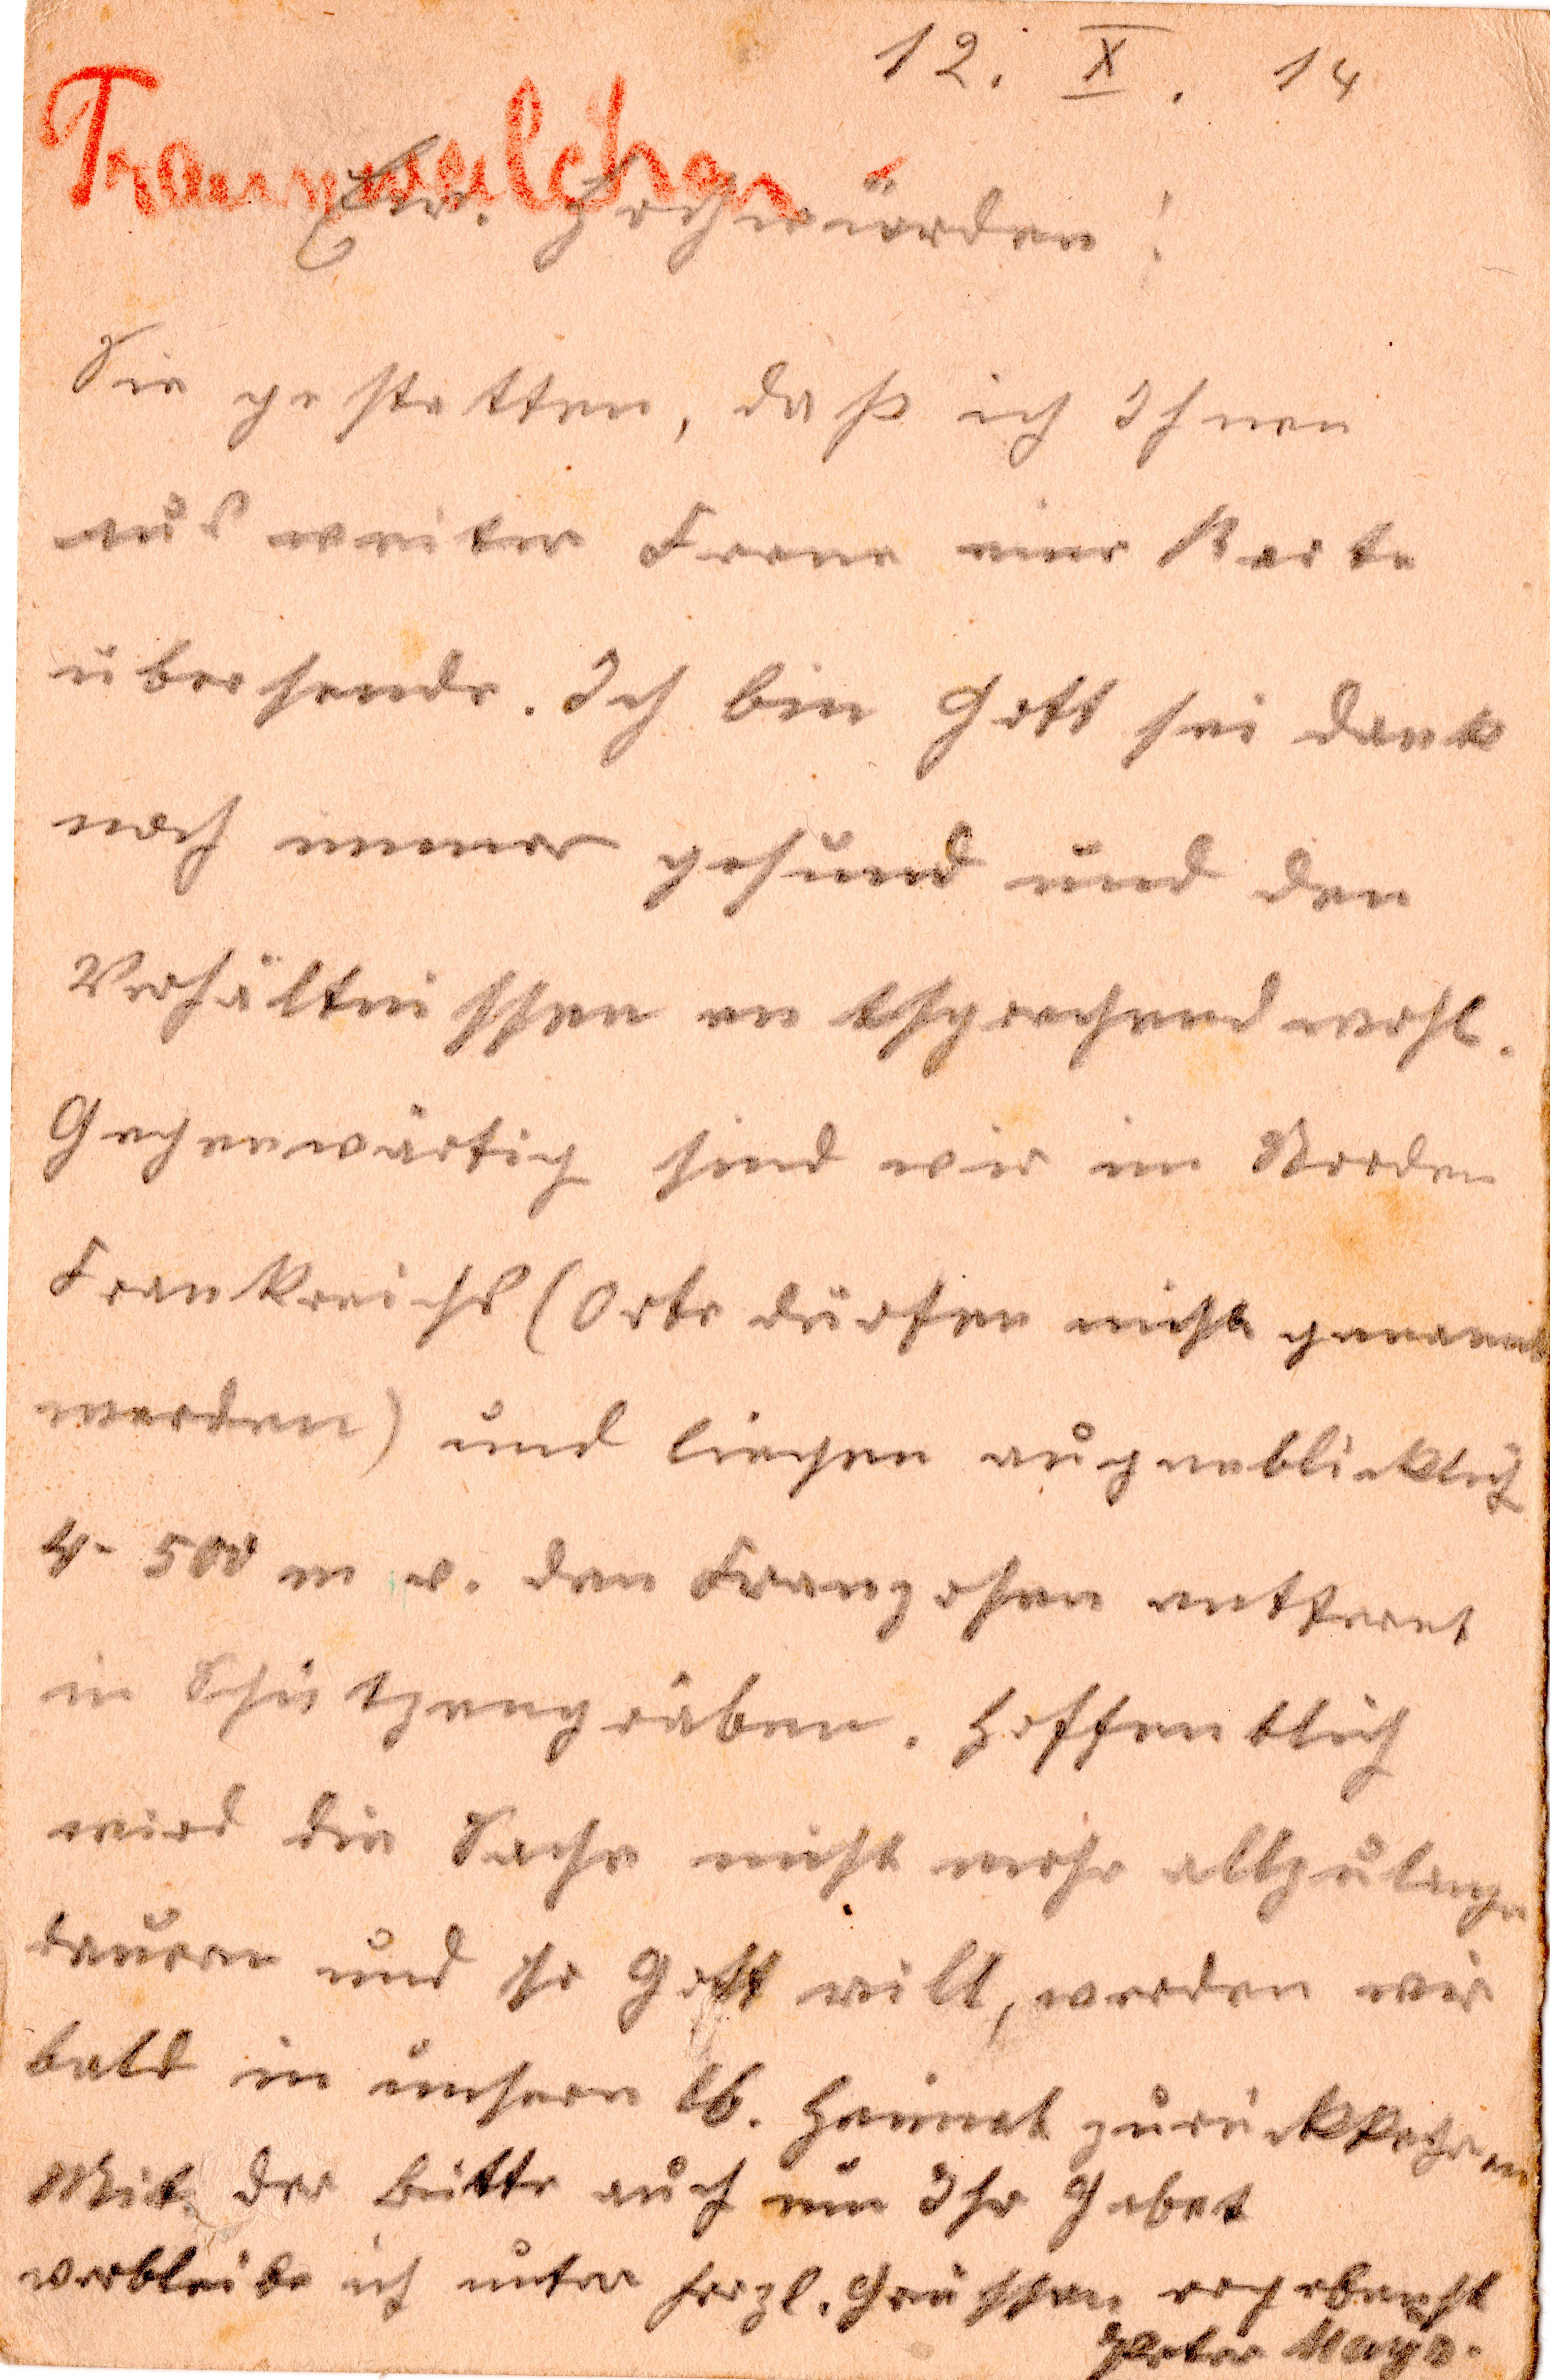 12. X. 14
Traunwalchen
Ew. Hochwürden!
Sie gestatten, daß ich Ihnen
aus weiter Ferne eine Karte
übersende. Ich bin Gott sei dank
noch immer gesund und den
Verhältnissen entsprechend wohl.
Gegenwärtig sind wir im Norden
Frankreichs (Orte dürfen nicht genannt
werden) und liegen augenblicklich
4-500 m v. den Franzosen entfernt
in Schützengräben. Hoffentlich
wird die Sache nicht mehr allzulange
dauern und so Gott will, werden wir
bald in unsere lb. Heimat zurückkehren
Mit der Bitte auch um Ihr Gebet
verbleibe ich unter herzl. Grüssen ergebenst
Peter Mayr.